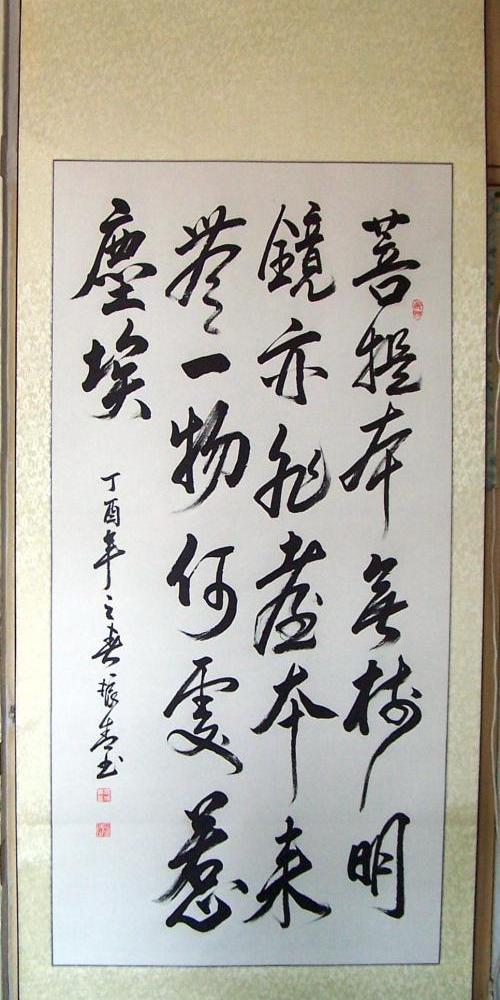 菩提本無樹明
鏡亦非臺本来
無一物何處惹
塵埃
丁酉年之春振